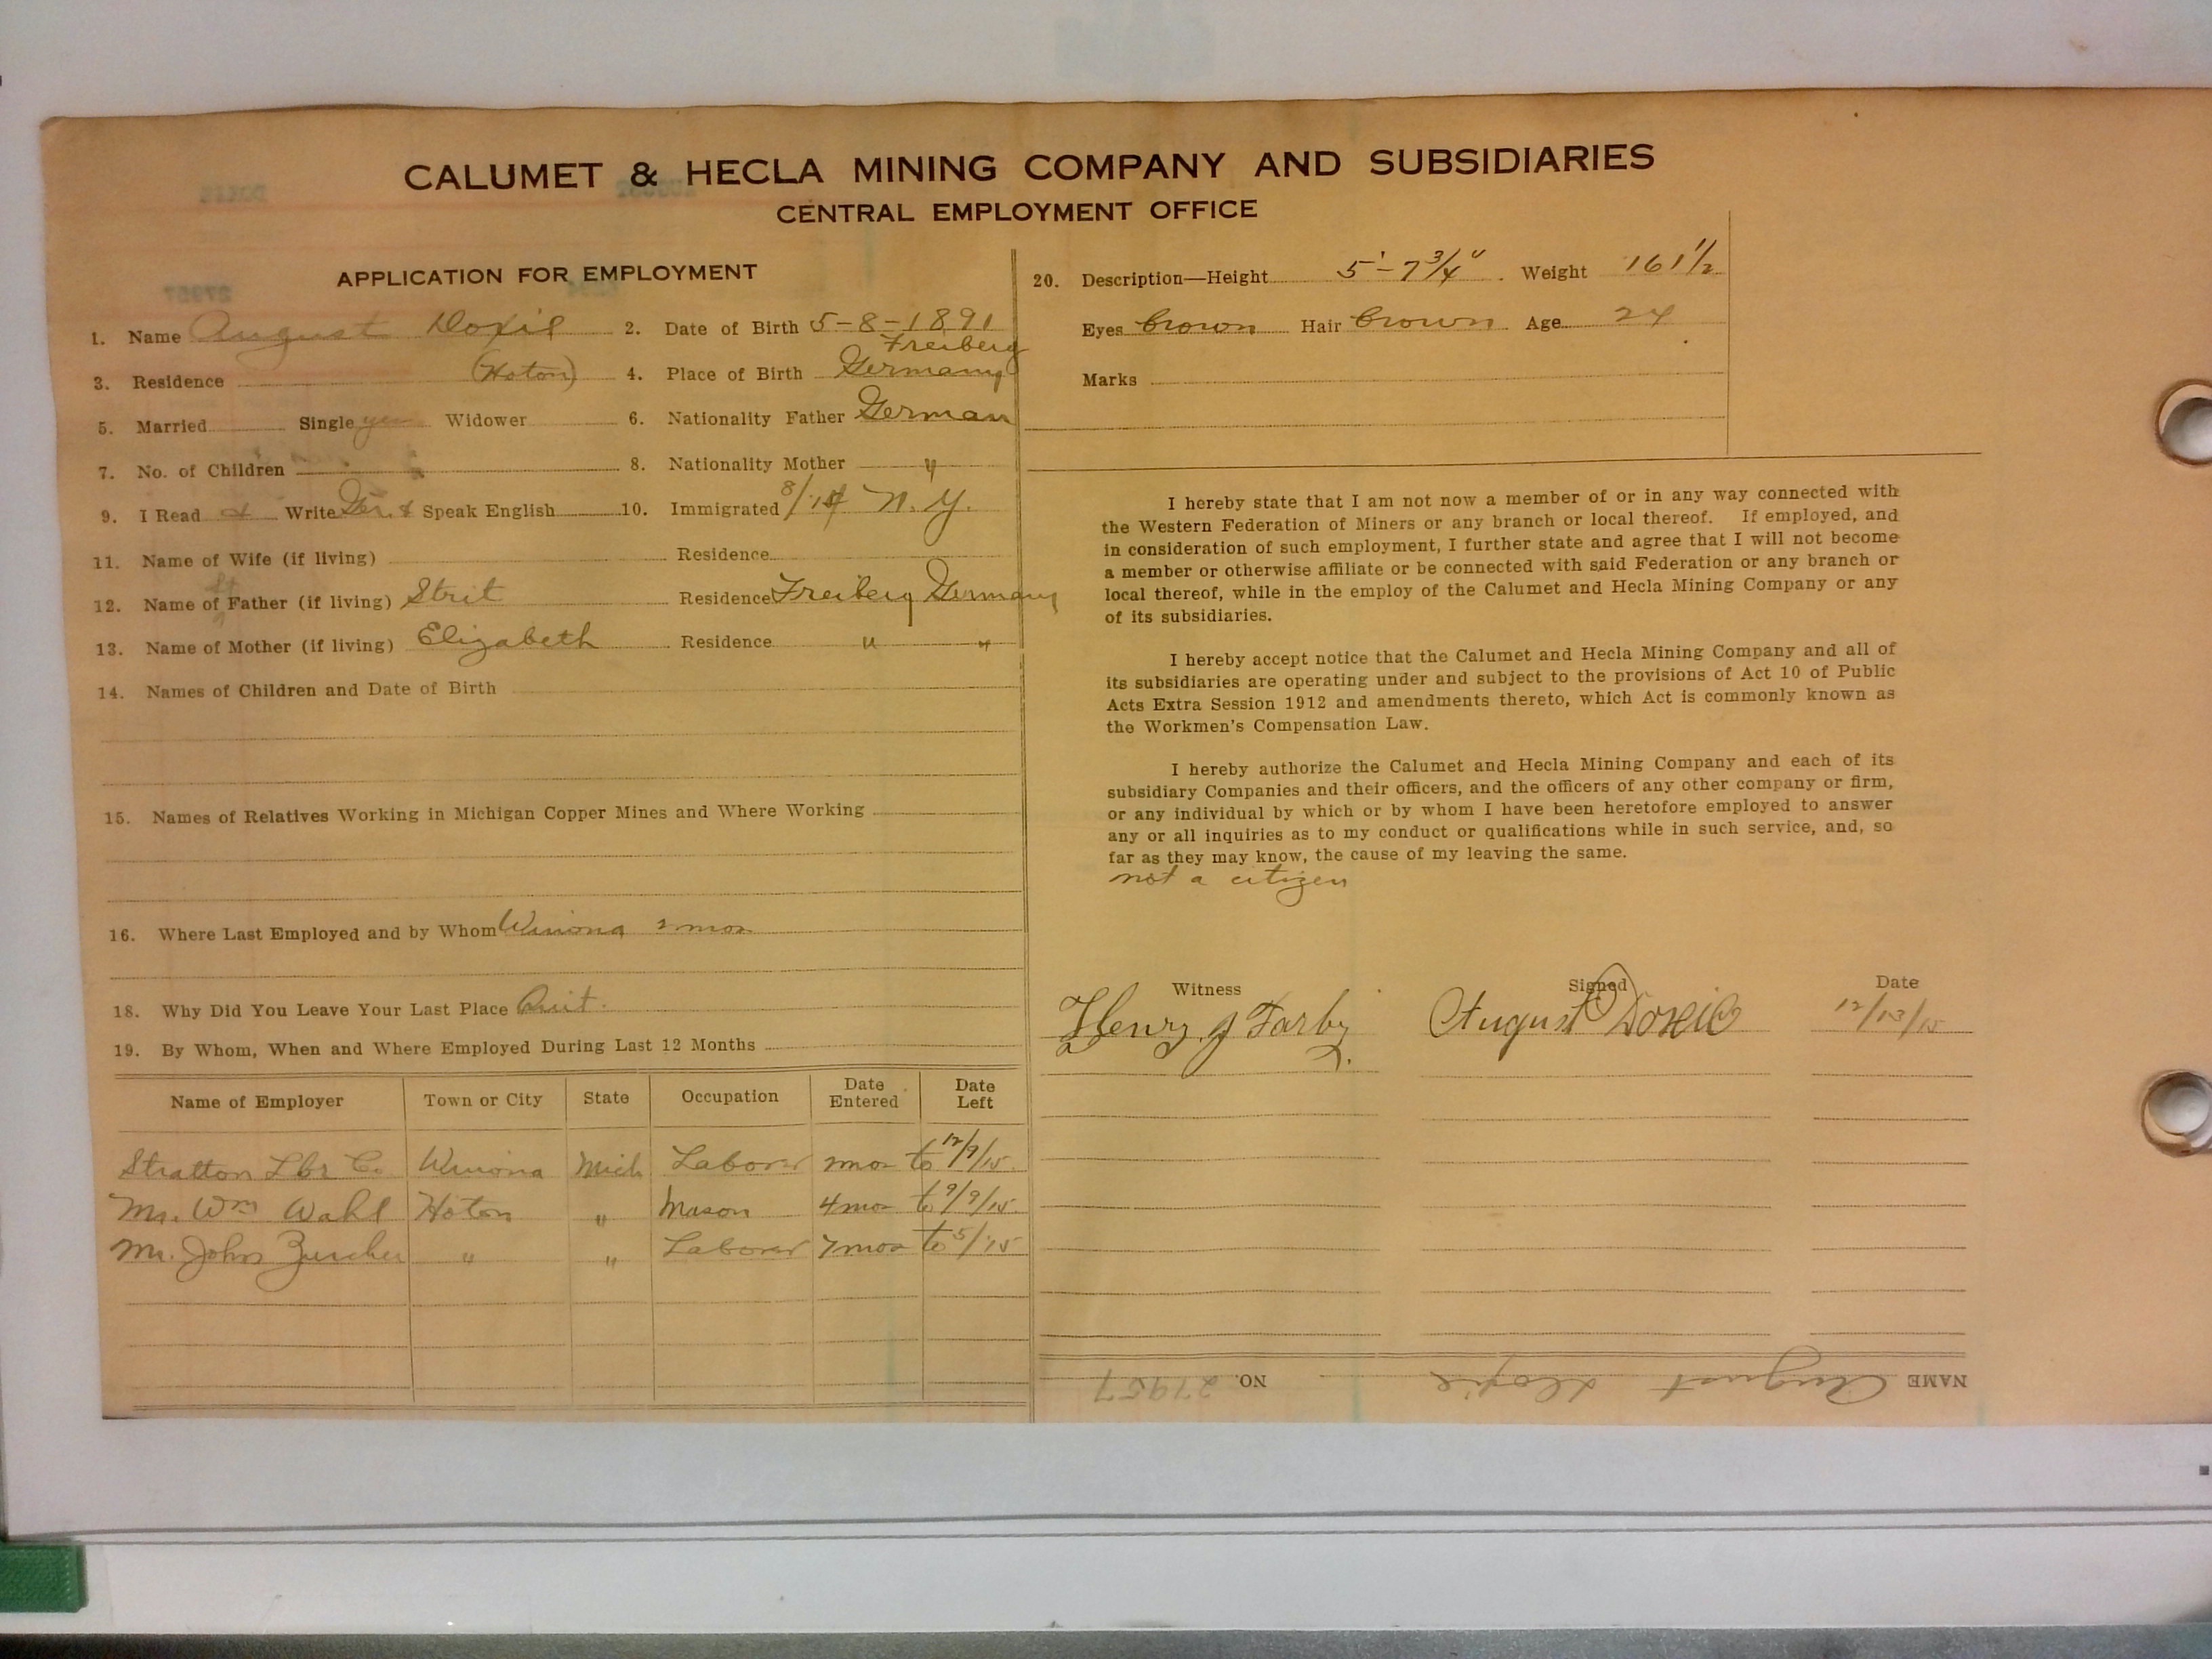 CALUMET & HECLA MINING COMPANY AND SUBSIDIARIES
CENTRAL EMPLOYMENT OFFICE
APPLICATION FOR EMPLOYMENT
1. Name August Doxie 2. Date of Birth 5-8-1891
Freiberg
3. Residence (Hoton) 4. Place of Birth Germany
5. Married Single yes Widower 6. Nationality Father German
7. No. of Children 8. Nationality Mother "
9. I Read & Write Ger. & Speak English 10. Immigrated 8/14 N.Y.
11. Name of Wife (if living) Residence
12. Name of Father (if living) Strit Residence Freiberg Germany
13. Name of Mother (if living) Elizabeth Residence " "
14. Names of Children and Date of Birth
15. Names of Relatives Working in Michigan Copper Mines and Where Working
16. Where Last Employed and by Whom Winona 2 mos
18. Why Did You Leave Your Last Place Quit.
19. By Whom, When and Where Employed During Last 12 Months
Name of Employer Town or City State Occupation Date Entered Date Left
Stratton Lbr Co Winona Mich Laborer 2mos to 12/9/15
Mr. Wm Wahl Hoton " Mason 4mos to 9/9/15
Mr. John Zurcher " " Laborer 7mos to 5/'15
20. Description—Height 5'-7 3/4" Weight 161 1/2
Eyes brown Hair brown Age 24
Marks
I hereby state that I am not now a member of or in any way connected with
the Western Federation of Miners or any branch or local thereof. If employed, and
in consideration of such employment, I further state and agree that I will not become
a member or otherwise affiliate or be connected with said Federation or any branch or
local thereof, while in the employ of the Calumet and Hecla Mining Company or any
of its subsidiaries.
I hereby accept notice that the Calumet and Hecla Mining Company and all of
its subsidiaries are operating under and subject to the provisions of Act 10 of Public
Acts Extra Session 1912 and amendments thereto, which Act is commonly known as
the Workmen's Compensation Law.
I hereby authorize the Calumet and Hecla Mining Company and each of its
subsidiary Companies and their officers, and the officers of any other company or firm,
or any individual by which or by whom I have been heretofore employed to answer
any or all inquiries as to my conduct or qualifications while in such service, and, so
far as they may know, the cause of my leaving the same.
not a citizen
Witness Signed Date
Henry J Farby August Doxie 12/13/15
NAME August Doxie NO. 27957